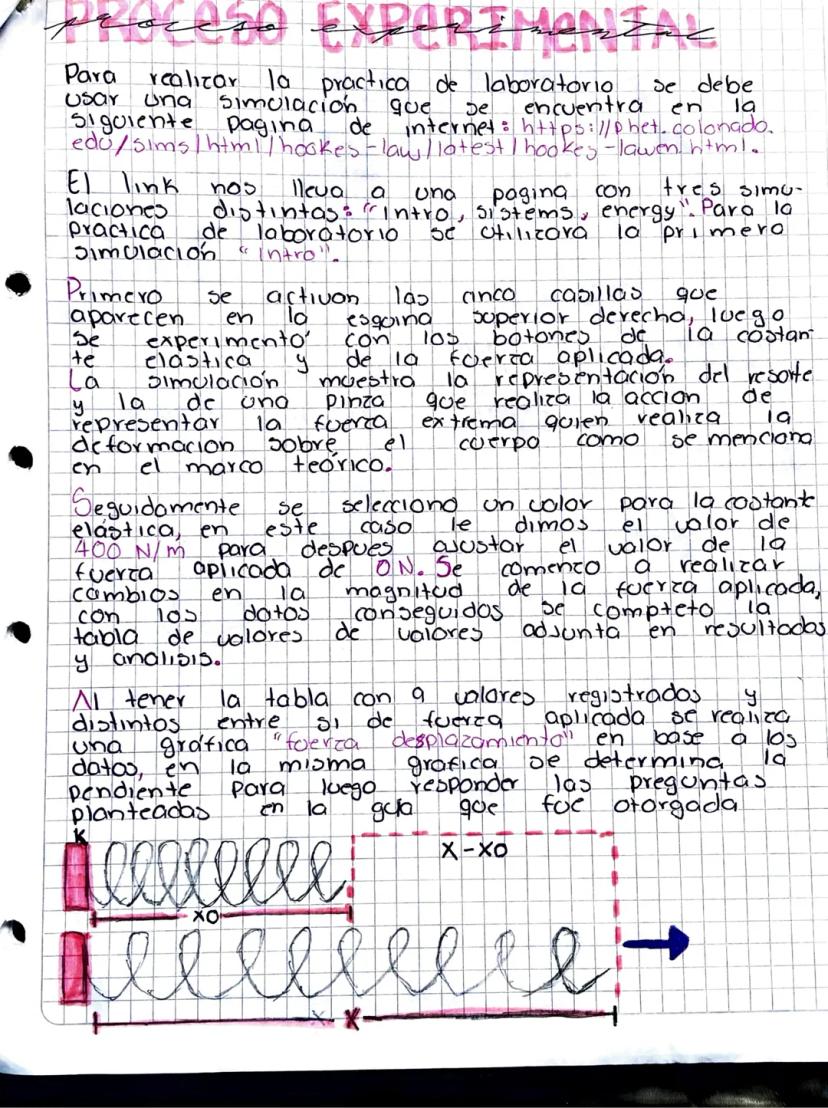 PROCESO EXPERIMENTAL
proceso experimental
Para realizar la practica de laboratorio se debe
usar una simulación que se encuentra en la
siguiente pagina de internet: https://phet.colonado.
edu/sims/html/hookes-law/latest/hookes-lawen.html.
El link nos lleva a una pagina con tres simu-
laciones distintas: "Intro, sistems, energy". Para la
practica de laboratorio se utilizara la primera
simulación "Intro".
Primero se activan las cinco casillas que
aparecen en la esquina superior derecha, luego
se experimentó con los botones de la costan-
te elástica y de la fuerza aplicada.
La simulación muestra la representación del resorte
y la de una pinza que realiza la accion de
representar la fuerza extrema quien realiza la
deformacion sobre el cuerpo como se menciona
en el marco teórico.
Seguidamente se selecciono un valor para la costante
elástica, en este caso le dimos el valor de
400 N/m para despues ajustar el valor de la
fuerza aplicada de 0N. Se comenzo a realizar
cambios en la magnitud de la fuerza aplicada,
con los datos conseguidos se completo la
tabla de valores de valores adjunta en resultados
y analisis.
Al tener la tabla con 9 valores registrados y
distintos entre si de fuerza aplicada se realiza
una gráfica "fuerza desplazamiento" en base a los
datos, en la misma grafica se determina la
pendiente para luego responder las preguntas
planteadas en la guia que fue otorgada
K
X-XO
XO
X